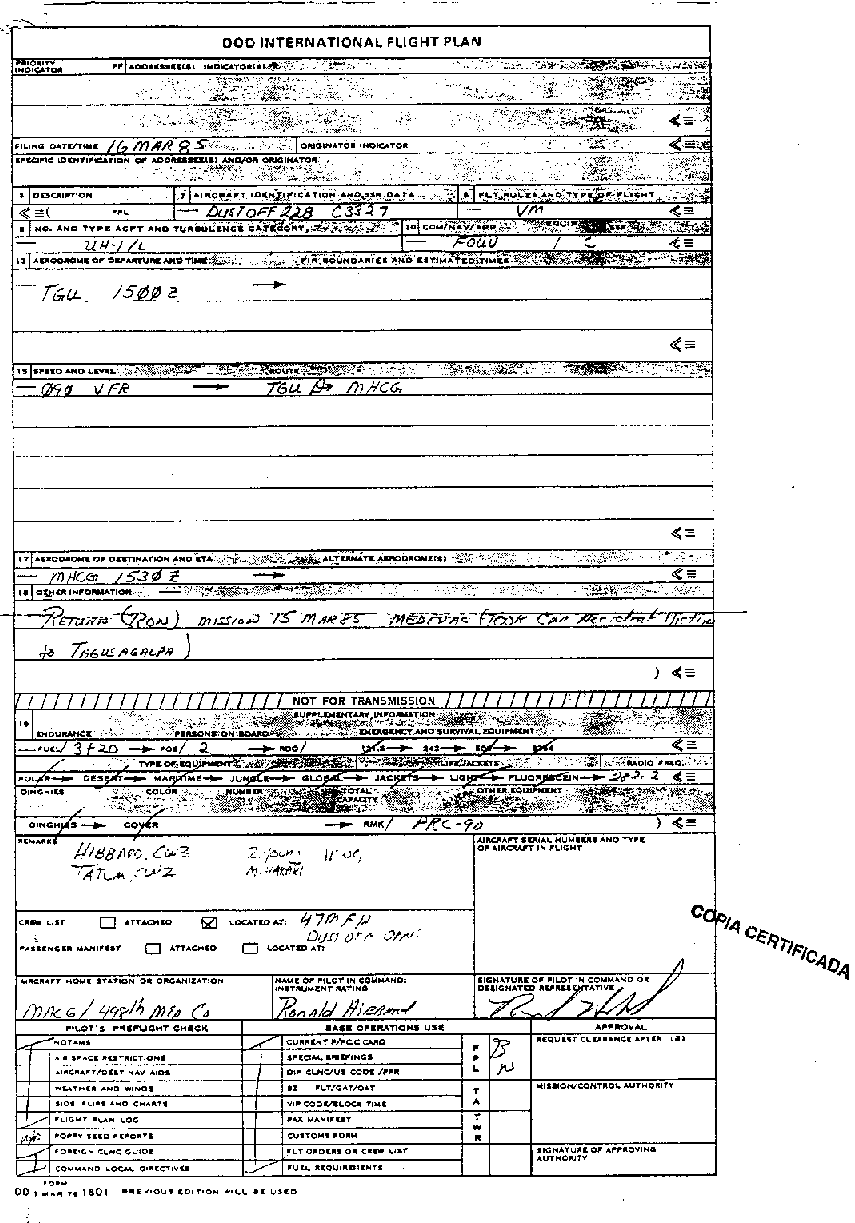 DOD INTERNATIONAL FLIGHT PLAN
PRIORITY INDICATOR FF ADDRESSEE(S) INDICATOR(S)
FILING DATE/TIME 16 MAR 85 ORIGINATOR INDICATOR
SPECIFIC IDENTIFICATION OF ADDRESSEE(S) AND/OR ORIGINATOR
DESCRIPTION 7 AIRCRAFT IDENTIFICATION AND SSR DATA 8 FLT RULES AND TYPE OF FLIGHT
FPL DUSTOFF 228 C3327 VM
9 NO. AND TYPE ACFT AND TURBULENCE CATEGORY 10 COM/NAV/
UH-1/L
13 AERODROME OF DEPARTURE AND TIME FIR BOUNDARIES AND ESTIMATED TIMES
TGU 1500Z →
15 SPEED AND LEVEL ROUTE
090 VFR → TGU MHCG
17 AERODROME OF DESTINATION AND ETA ALTERNATE AERODROME(S)
MHCG 1530Z →
18 OTHER INFORMATION
RETURN (RON) MISSION 15 MAR 85 MEDEVAC (TOOK Car Accident Victim
to TAGUSAGALPA)
NOT FOR TRANSMISSION
SUPPLEMENTARY INFORMATION
19 ENDURANCE PERSONS ON BOARD EMERGENCY AND SURVIVAL EQUIPMENT
FUEL/ 3+20 → POB/ 2 → RDO/ 121.5 → 243 → 500 →
TYPE OF EQUIPMENT LIFE JACKETS RADIO FREQ.
POLAR → DESERT → MARITIME → JUNGLE → GLOBAL → JACKETS → LIGHT → FLUORESCEIN → 282.2
DINGHIES COLOR NUMBER TOTAL CAPACITY OTHER EQUIPMENT
DINGHIES → COVER → RMK/ PRC-90
REMARKS AIRCRAFT SERIAL NUMBERS AND TYPE OF AIRCRAFT IN FLIGHT
HIBBARD, CW3
CW2
CREW LIST ATTACHED LOCATED AT: 47th FH
DUSTOFF
PASSENGER MANIFEST ATTACHED LOCATED AT:
AIRCRAFT HOME STATION OR ORGANIZATION NAME OF PILOT IN COMMAND: INSTRUMENT RATING SIGNATURE OF PILOT IN COMMAND OR DESIGNATED REPRESENTATIVE
MHCG / 498th MED CO Ronald Hibbard
PILOT'S PREFLIGHT CHECK BASE OPERATIONS USE APPROVAL
NOTAMS CURRENT P/PCC CARD F P L B N REQUEST CLEARANCE AFTER
AIR SPACE RESTRICTIONS SPECIAL BRIEFINGS
AIRCRAFT/DEST NAV AIDS DIP CLNC/US CODE/PPR
WEATHER AND WINDS FLT/GAT/OAT T A MISSION/CONTROL AUTHORITY
SIDS, FLIPS AND CHARTS VIP CODE/BLOCK TIME
FLIGHT PLAN LOG PAX MANIFEST T W R
POPPY SEED REPORTS CUSTOMS FORM
FOREIGN CLNC GUIDE FLT ORDERS OR CREW LIST SIGNATURE OF APPROVING AUTHORITY
COMMAND LOCAL DIRECTIVES FUEL REQUIREMENTS
DD FORM 1801 PREVIOUS EDITION WILL BE USED
COPIA CERTIFICADA